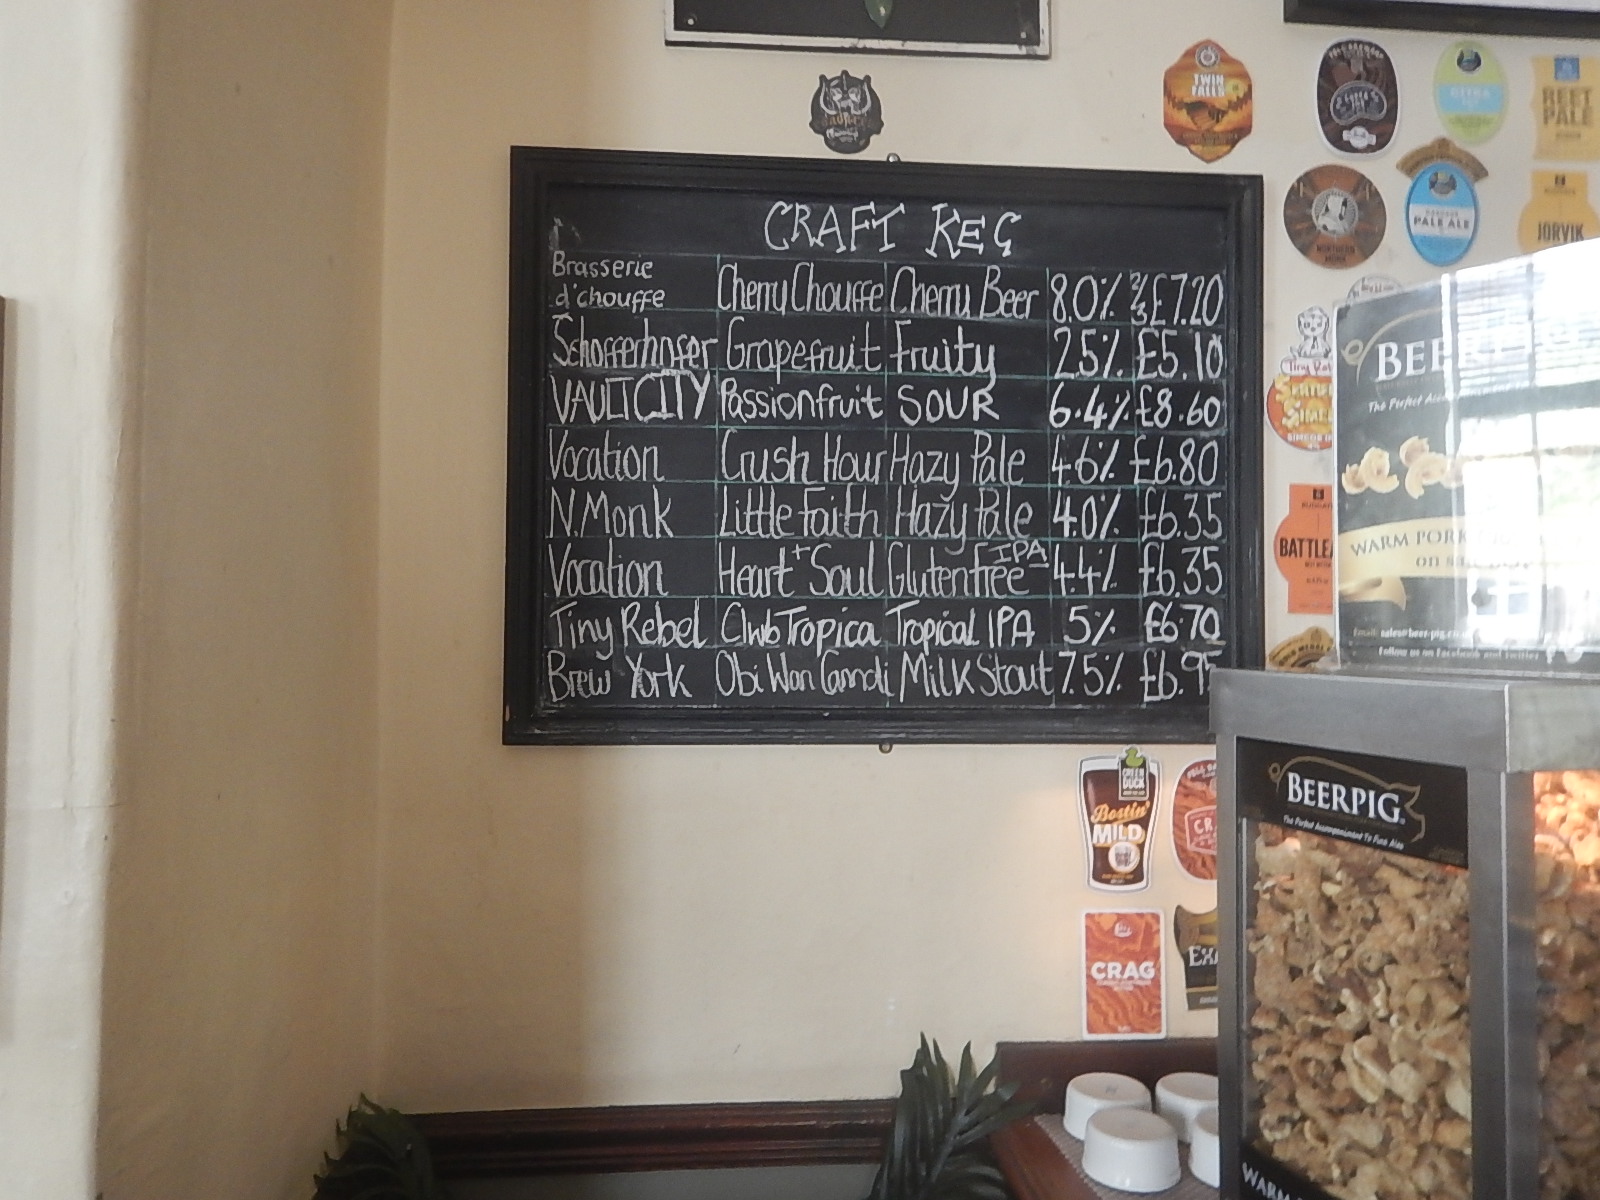 CRAFT KEG
Brasserie d'chouffe Cherry Chouffe Cherry Beer 8.0% 2/3 £7.20
Schofferhofer Grapefruit Fruity 2.5% £5.10
VAULT CITY Passionfruit SOUR 6.4% £8.60
Vocation Crush Hour Hazy Pale 4.6% £6.80
N.Monk Little Faith Hazy Pale 4.0% £6.35
Vocation Heart + Soul Glutenfree IPA 4.4% £6.35
Tiny Rebel Clwb Tropica Tropical IPA 5% £6.70
Brew York Obi Wan Cannoli Milk Stout 7.5% £6.95
TWIN FALLS
CITRA
BEET PALE
NORTHERN MONK
PALE ALE
JORVIK
Tiny Reb
BATTLE
BEER
The Perfect Acc
WARM PORK
on s
Email: sales@beer-pig.co
Follow us on Facebook and twitter
GREEN DUCK
Bostin'
MILD
CR
CRAG
EX
BEERPIG
The Perfect Accompaniment To Fine Ales
WARM